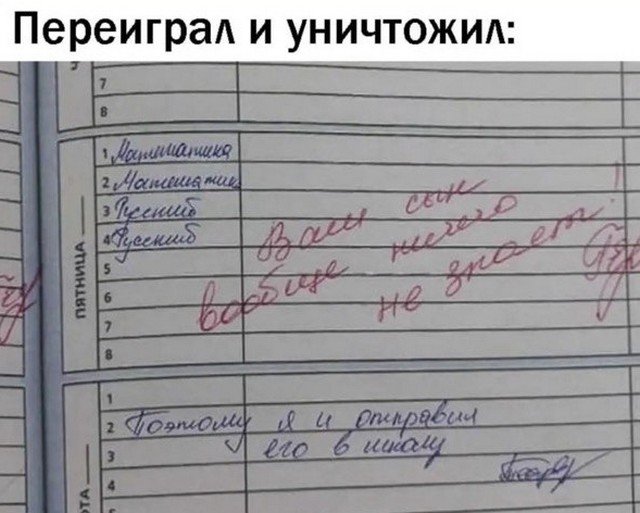 Переиграл и уничтожил:
7
8
ПЯТНИЦА
1 Математика
2 Математик
3 Русский
4 Русский
5
6
7
8
Ваш сын
вообще ничего
не знает!
1
2 Поэтому я и отправил
3 его в школу
4
ТА